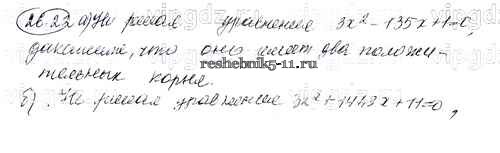 26.22 а) Не решая уравнения 3x² - 135x + 1 = 0,
докажите, что оно имеет два положи-
тельных корня.
reshebnik5-11.ru
б) Не решая уравнения 3x² + 1448x + 11 = 0,